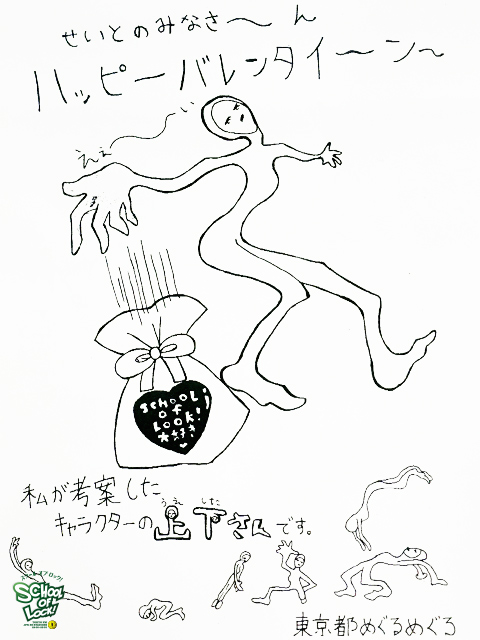 せいとのみなさ〜ん
ハッピーバレンタイ〜ン〜
えぇ〜い
SCHOOL
OF
LOOK!
大好き
私が考案した
うえ した
キャラクターの上下さんです。
スクールオブロック!
SCHOOL
OF
LOCK!
東京都めぐろめぐろ